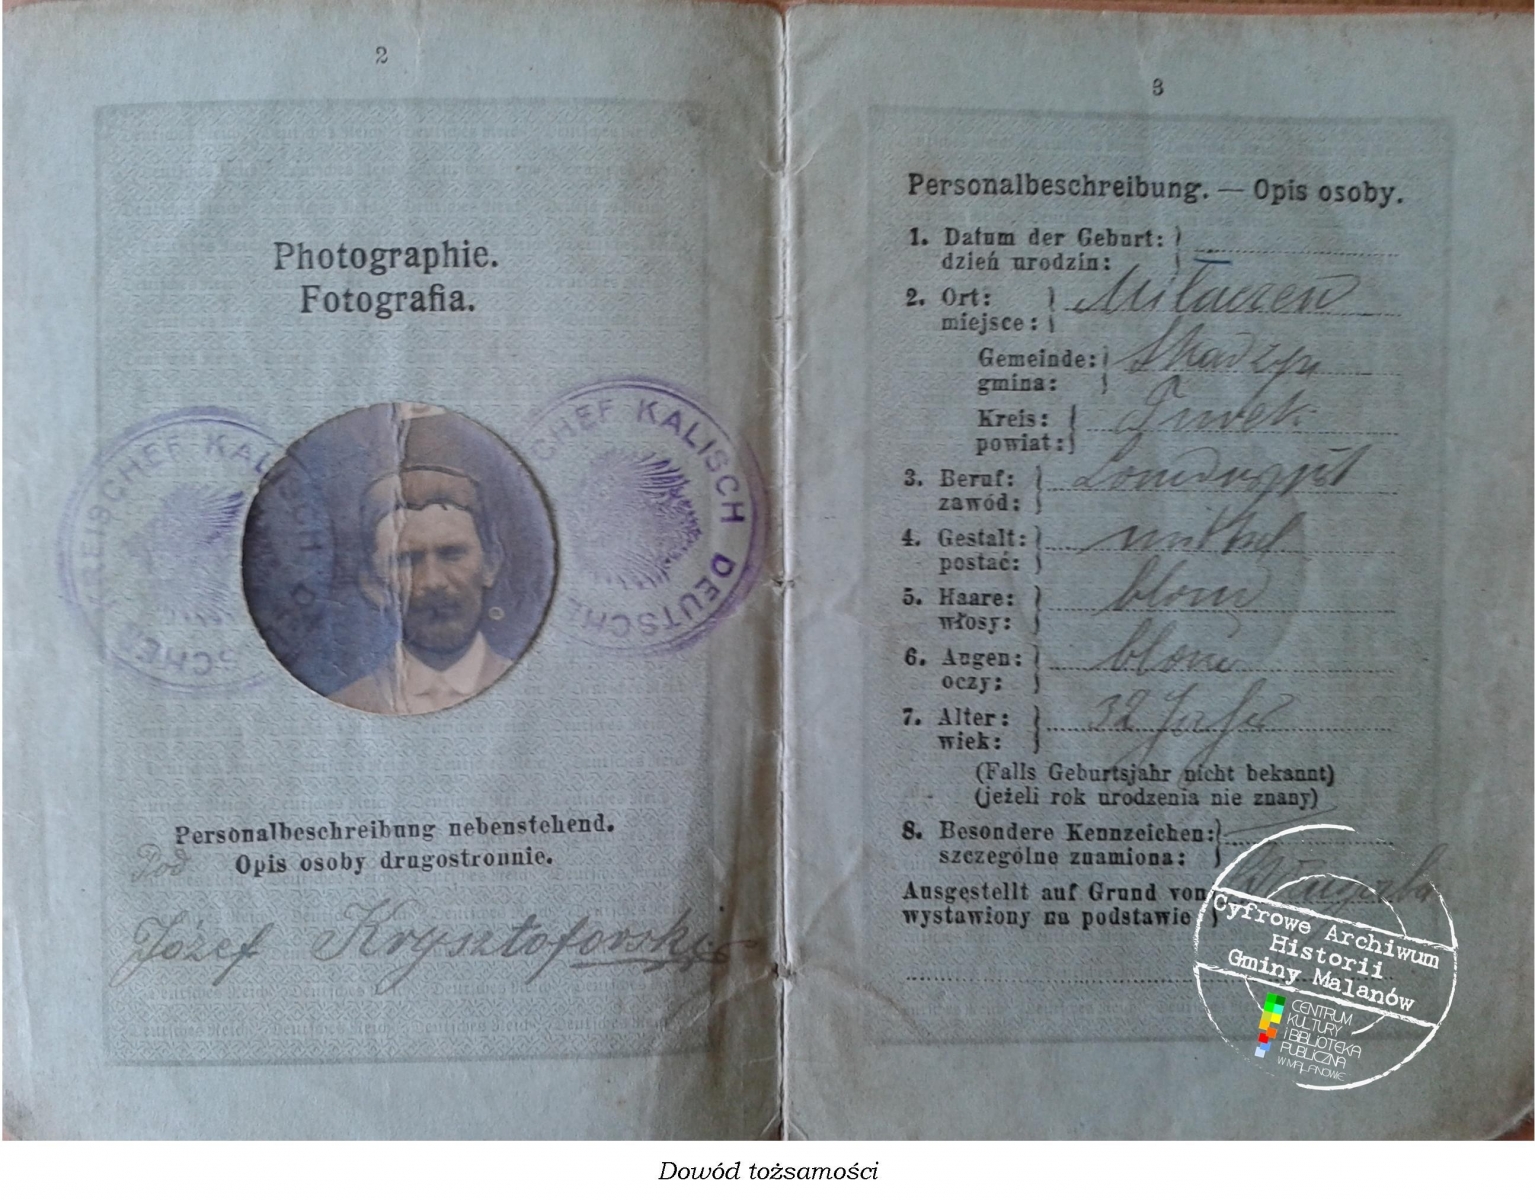 2
Photographie.
Fotografia.
KREISCHEF KALISCH
DEUTSCHER KREISCHEF KALISCH
Personalbeschreibung nebenstehend.
Pod Opis osoby drugostronnie.
Józef Krysztoforski
3
Personalbeschreibung. — Opis osoby.
1. Datum der Geburt:
dzień urodzin:
2. Ort: Miłaczew
miejsce:
Gemeinde: Skarżyn
gmina:
Kreis: Turek
powiat:
3. Beruf:
zawód:
4. Gestalt: mittel
postać:
5. Haare: blond
włosy:
6. Augen:
oczy:
7. Alter: 32 Jahre
wiek:
(Falls Geburtsjahr nicht bekannt)
(jeżeli rok urodzenia nie znany)
8. Besondere Kennzeichen:
szczególne znamiona:
Ausgestellt auf Grund von
wystawiony na podstawie
Cyfrowe Archiwum
Historii
Gminy Malanów
CENTRUM
KULTURY
I BIBLIOTEKA
PUBLICZNA
W MALANOWIE
Dowód tożsamości